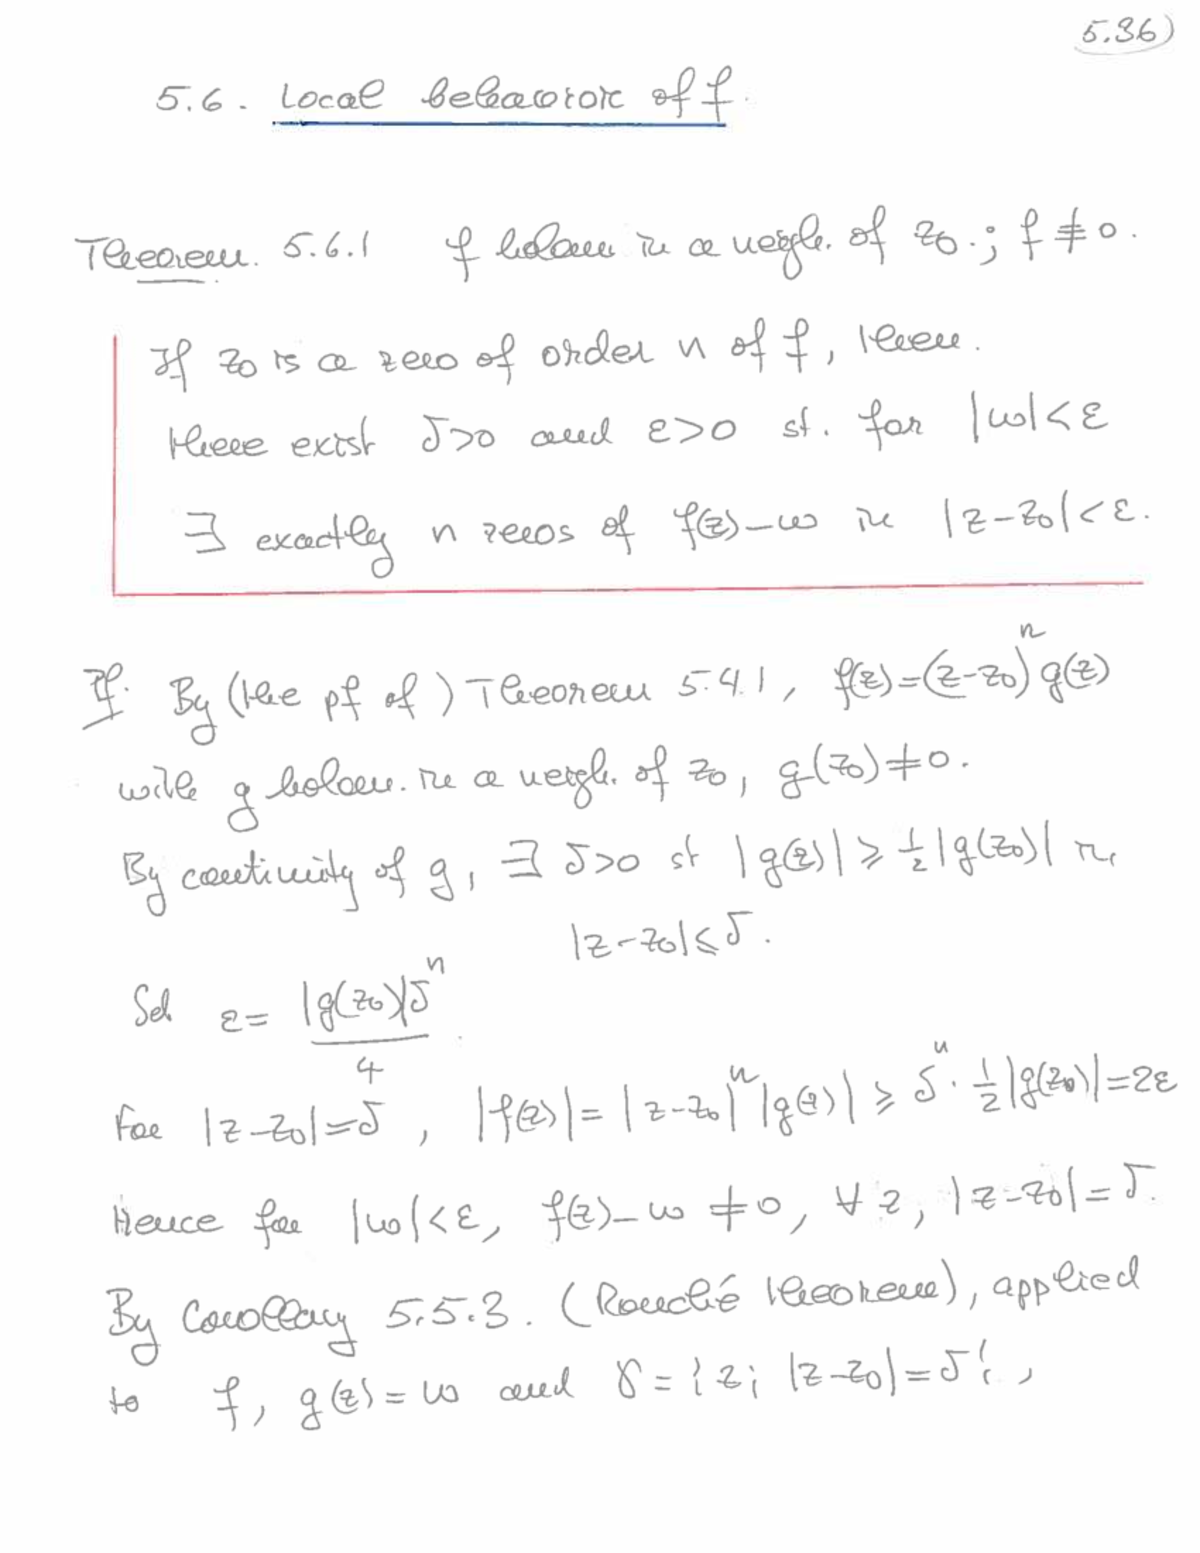 5.36)
5.6. Local behavior of f.
Theorem. 5.6.1 f holom in a neigh. of z₀.; f ≢ 0.
If z₀ is a zero of order n of f, then.
there exist δ>0 and ε>0 st. for |w|<ε
∃ exactly n zeros of f(z)-w in |z-z₀|<ε.
Pf. By (the pf of) Theorem 5.4.1, f(z)=(z-z₀)ⁿg(z)
with g holom. in a neigh. of z₀, g(z₀)≠0.
By continuity of g, ∃ δ>0 st |g(z)| ≥ ½|g(z₀)| in
|z-z₀|≤δ.
Set ε = |g(z₀)|δⁿ / 4.
For |z-z₀|=δ, |f(z)|=|z-z₀|ⁿ|g(z)| ≥ δⁿ·½|g(z₀)|=2ε
Hence for |w|<ε, f(z)-w ≠0, ∀ z, |z-z₀|=δ.
By Corollary 5.5.3. (Rouché theorem), applied
to f, g(z)=w and γ={z; |z-z₀|=δ},